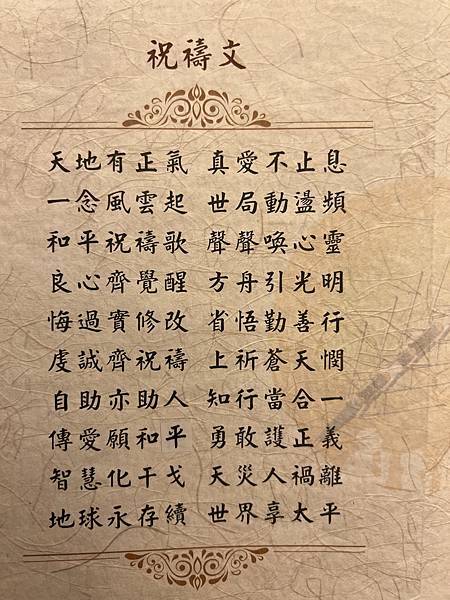 祝禱文
天地有正氣 真愛不止息
一念風雲起 世局動盪頻
和平祝禱歌 聲聲喚心靈
良心齊覺醒 方舟引光明
悔過實修改 省悟勤善行
虔誠齊祝禱 上祈蒼天憫
自助亦助人 知行當合一
傳愛願和平 勇敢護正義
智慧化干戈 天災人禍離
地球永存續 世界享太平